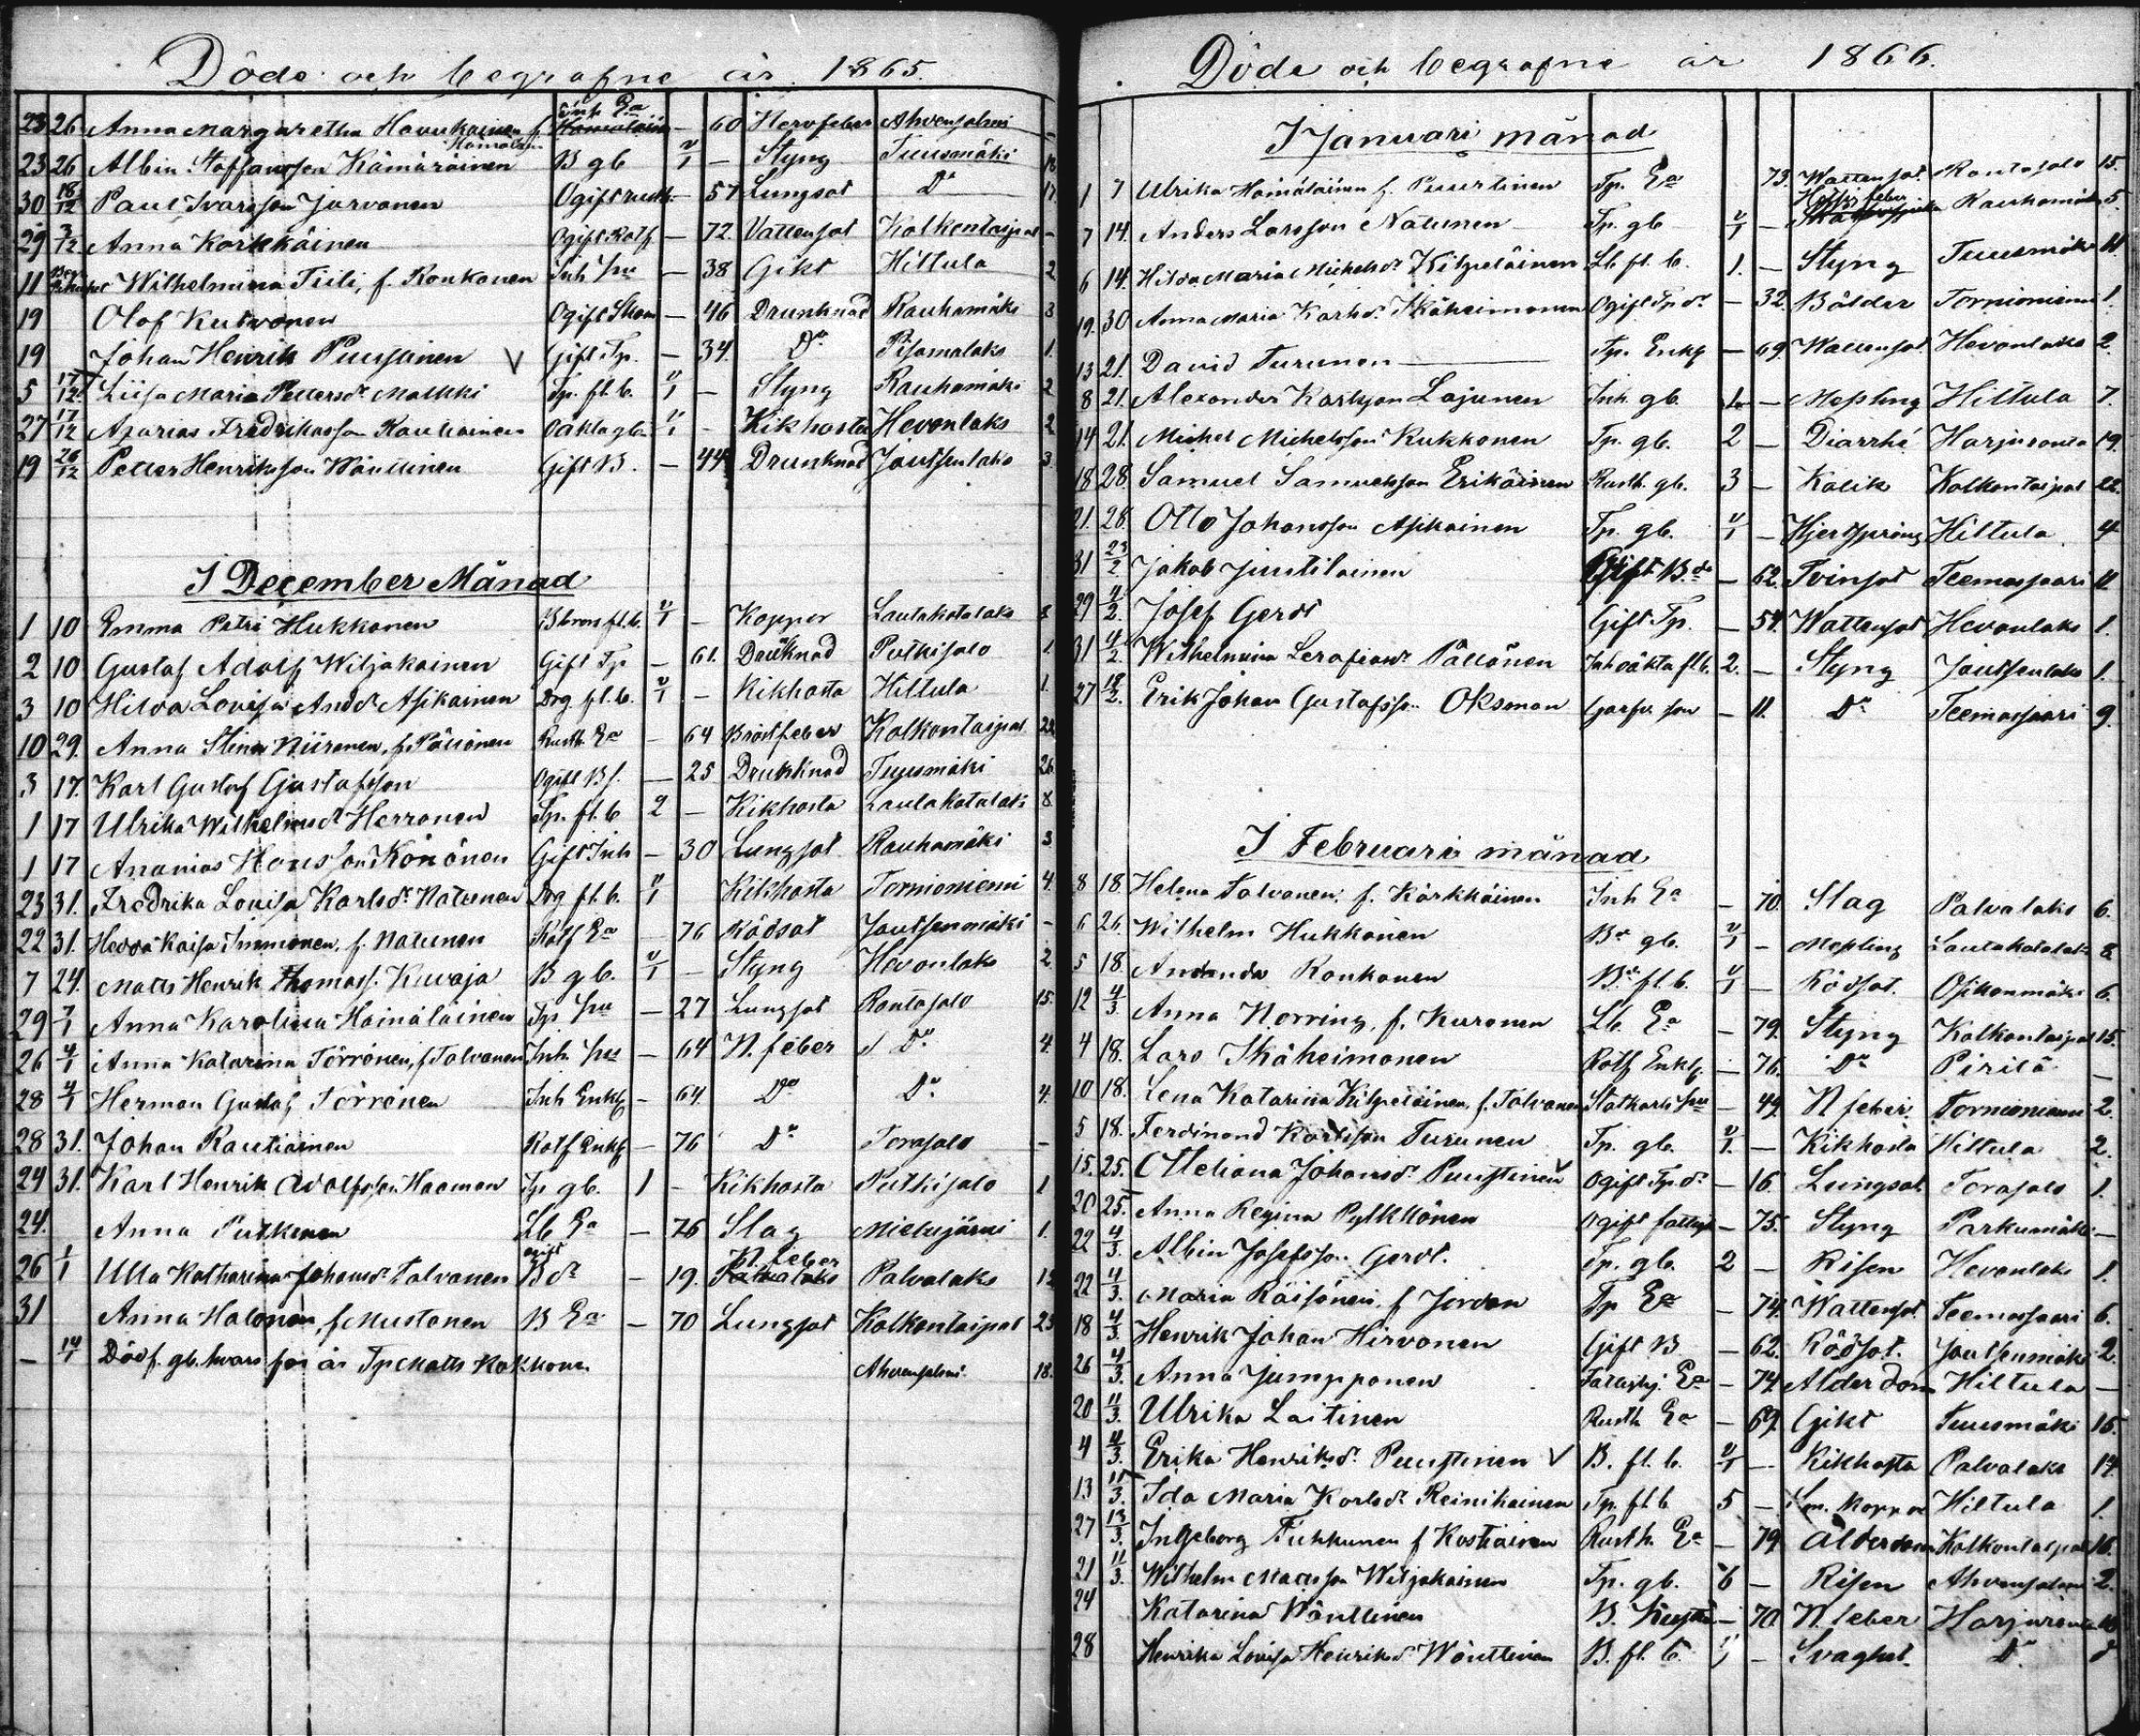 Döde och begrafne år 1865.
23 26 Anna Margaretha Havukainen f. Hämäläin Inh Ea — 60 Nervfeber Ahvensalmi —
23 26 Albin Staffansson Kämäräinen B gb — Styng Tuusmäki
30 18/12 Paul Ivarsson Jarvonen Ogift rusth — 57 Lungsot Do 17
29 3/12 Anna Karkkäinen Ogift Rotf — 72. Vattensot Kolkontaipal —
11 Wilhelmina Tiili, f. Ronkonen Inh hu — 38 Gikt Hiltula 2
19 Olof Kutvonen Ogift — 46 Drunknad Rauhamäki 3
19 Johan Henrik Puustinen V Gift Tp. — 34. Do Pisamalaks 1.
5 17/12 Liisa Maria Pettersdr Malkki Tp. fl. b. — Styng Rauhamäki 2
27 17/12 Asarias Fredriksson Rautiainen oäkta gb. - Kikhosta Hevonlaks 2
19 26/12 Petter Henriksson Wänttinen Gift B. — 44 Drunknad Joutsenlaks 3.
I December Månad
1 10 Emma Petri Hukkanen fl. b. — Koppor Lautakotalaks 8
2 10 Gustaf Adolf Wiljakainen Gift Tp — 61. Drunknad Putkisalo 1
3 10 Hilda Lovisa Andd. Asikainen Drg. fl. b. — Kikhosta Hiltula 1.
10 29. Anna Stina Niiranen, f. Pöllönen Rusth Ea — 64 Bröstfeber Kolkontaipal 22
3 17. Karl Gustaf Gustafsson Ogift B f. — 25 Drunknad Tuusmäki 26
1 17 Ulrika Wilhelmsdr Herranen Tp. fl. b 2 — Kikhosta Lautakotalaks 8
1 17 Ananias Hansson Könönen Gift Inh — 30 Lungsot Rauhamäki 3
23 31. Fredrika Lovisa Karlsdr Natunen Drg fl. b. Kikhosta Tornioniemi 4.
22 31. Hedda Kaisa Immonen, f. Natunen Rotf Ea — 76 Rödsot Joutsenmäki -
7 24. Matts Henrik Thomass. Kuvaja B gb. — Styng Hevonlaks 2
29 7/1 Anna Karolina Hämäläinen Tp hu — 27 Lungsot Rantasalo 15.
26 4/1 Anna Katarina Törrönen, f. Talvanen Inh. hu — 64 N. feber Do 4.
28 4/1 Herman Gustaf Törrönen Inh Enkl — 64. Do Do 4.
28 31. Johan Rautiainen Rotf Enkl — 76 Do Torasalo —
29 31. Karl Henrik Adolfsson Haemen Tp gb. 1 - Kikhosta Putkisalo 1
24. Anna Putkonen Lb Ea — 76 Slag Mielusjärvi 1.
26 1/1 Ulla Katharina Johansdr Talvanen ogift B dr — 19. N. feber Palvalaks
31 Anna Halonen, f. Mustonen B Ea — 70 Lungsot Kolkontaipal 23
— 14/1 Dödf. gb. hvars far är Tp Matts Kokkonen Ahvensalmi 18.
Döde och begrafne år 1866.
I Januari månad
1 7 Ulrika Hämäläinen f. Puustinen Tp. Ea 73. Wattensot Rantasalo 15.
7 14. Anders Larsson Natunen Tp. gb — Rauhamäki 5.
6 14. Hilda Maria Michelsdr Kilpeläinen Lb fl. b. 1. — Styng Tuusmäki 11.
19. 30 Anna Maria Karlsdr Ikäheimonen Ogift Tp dr — 32. Bölder Tornioniemi 1.
13 21. David Turunen Tp. Enkl — 69. Wattensot Hevonlaks 2.
8 21. Alexander Karlsson Lajunen Inh. gb. 1 — Messling Hiltula 7.
14 21. Michel Michelsson Kukkonen Tp. gb. 2 — Diarrhé Harjuranta 19.
18 28. Samuel Samuelsson Erikäinen Rusth. gb. 3 — Kolik Kolkontaipal 22.
21. 28. Otto Johansson Asikainen Tp. gb. — Hjertspring Hiltula 4
31 23/2 Jakob Juutilainen Gift B. — 62. Tvinsot Teemassaari 11
29 4/2. Josef Gerdt Gift Tp. — 54. Wattensot Hevonlaks 1.
31 4/2. Wilhelmina Serafiasdr Pöllönen Inh oäkta fl b. 2. — Styng Joutsenlaks 1.
27 18/2. Erik Johan Gustafsson Oksman Garfv. son — 11. Do Teemassaari 9.
I Februari månad
8 18 Helena Talvanen, f. Kärkkäinen Inh Ea — 70. Slag Palvalaks 6.
6 26. Wilhelm Hukkanen Br gb. — Messling Lautakotalaks 8.
5 18. Amanda Ronkonen B. fl b. — Rödsot. Osikonmäki 6.
12 4/3 Anna Norring, f. Kuronen Lb. Ea — 79. Styng Kolkontaipal 15.
4 18. Lars Ikäheimonen Rotf Enkl. — 76. Do Pirilä —
10 18. Lena Katarina Kilpeläinen, f. Talvanen Statkarls hu — 49. N feber Tornioniemi 2.
5 18. Ferdinand Karlsson Turunen Tp. gb. — Kikhosta Hiltula 2.
15. 25. Otteliana Johansdr Puustinen V Ogift Tp. dr — 16. Lungsot Torasalo 1.
20 25. Anna Regina Pylkkönen Ogift fattigh — 75. Styng Parkumäki —
22 4/3. Albin Josefsson Gerdt. Tp. gb. 2 — Risen Hevonlaks 1.
22 4/3. Maria Räisänen, f Jordan Tp Ea — 74. Wattensot Teemassaari 6.
18 4/3. Henrik Johan Hirvonen Gift B — 62. Rödsot. Joutsenmäki 2.
26 4/3. Anna Jumpponen Fattighj. Ea — 74. Ålderdom Hiltula —
20 11/3. Ulrika Laitinen Rusth Ea — 69. Gikt Tuusmäki 15.
4 4/3. Erika Henriksdr Puustinen V B. fl. b. — Kikhosta Palvalaks 14
13 11/3. Ida Maria Karlsdr Reinikainen Tp. fl b 5 — Hiltula 1.
27 13/3. Ingeborg Tiukkunen f Kostiainen Rusth. Ea — 79. Ålderdom Kolkontaipal 16.
21 11/3. Wilhelm Matsson Wiljakainen Tp. gb. 6 — Risen Ahvensalmi 2.
24 Katarina Wänttinen B. — 70. N. feber Harjuranta
28 Henrika Lovisa Henriksdr Wänttinen B. fl. b. — Svaghet Do